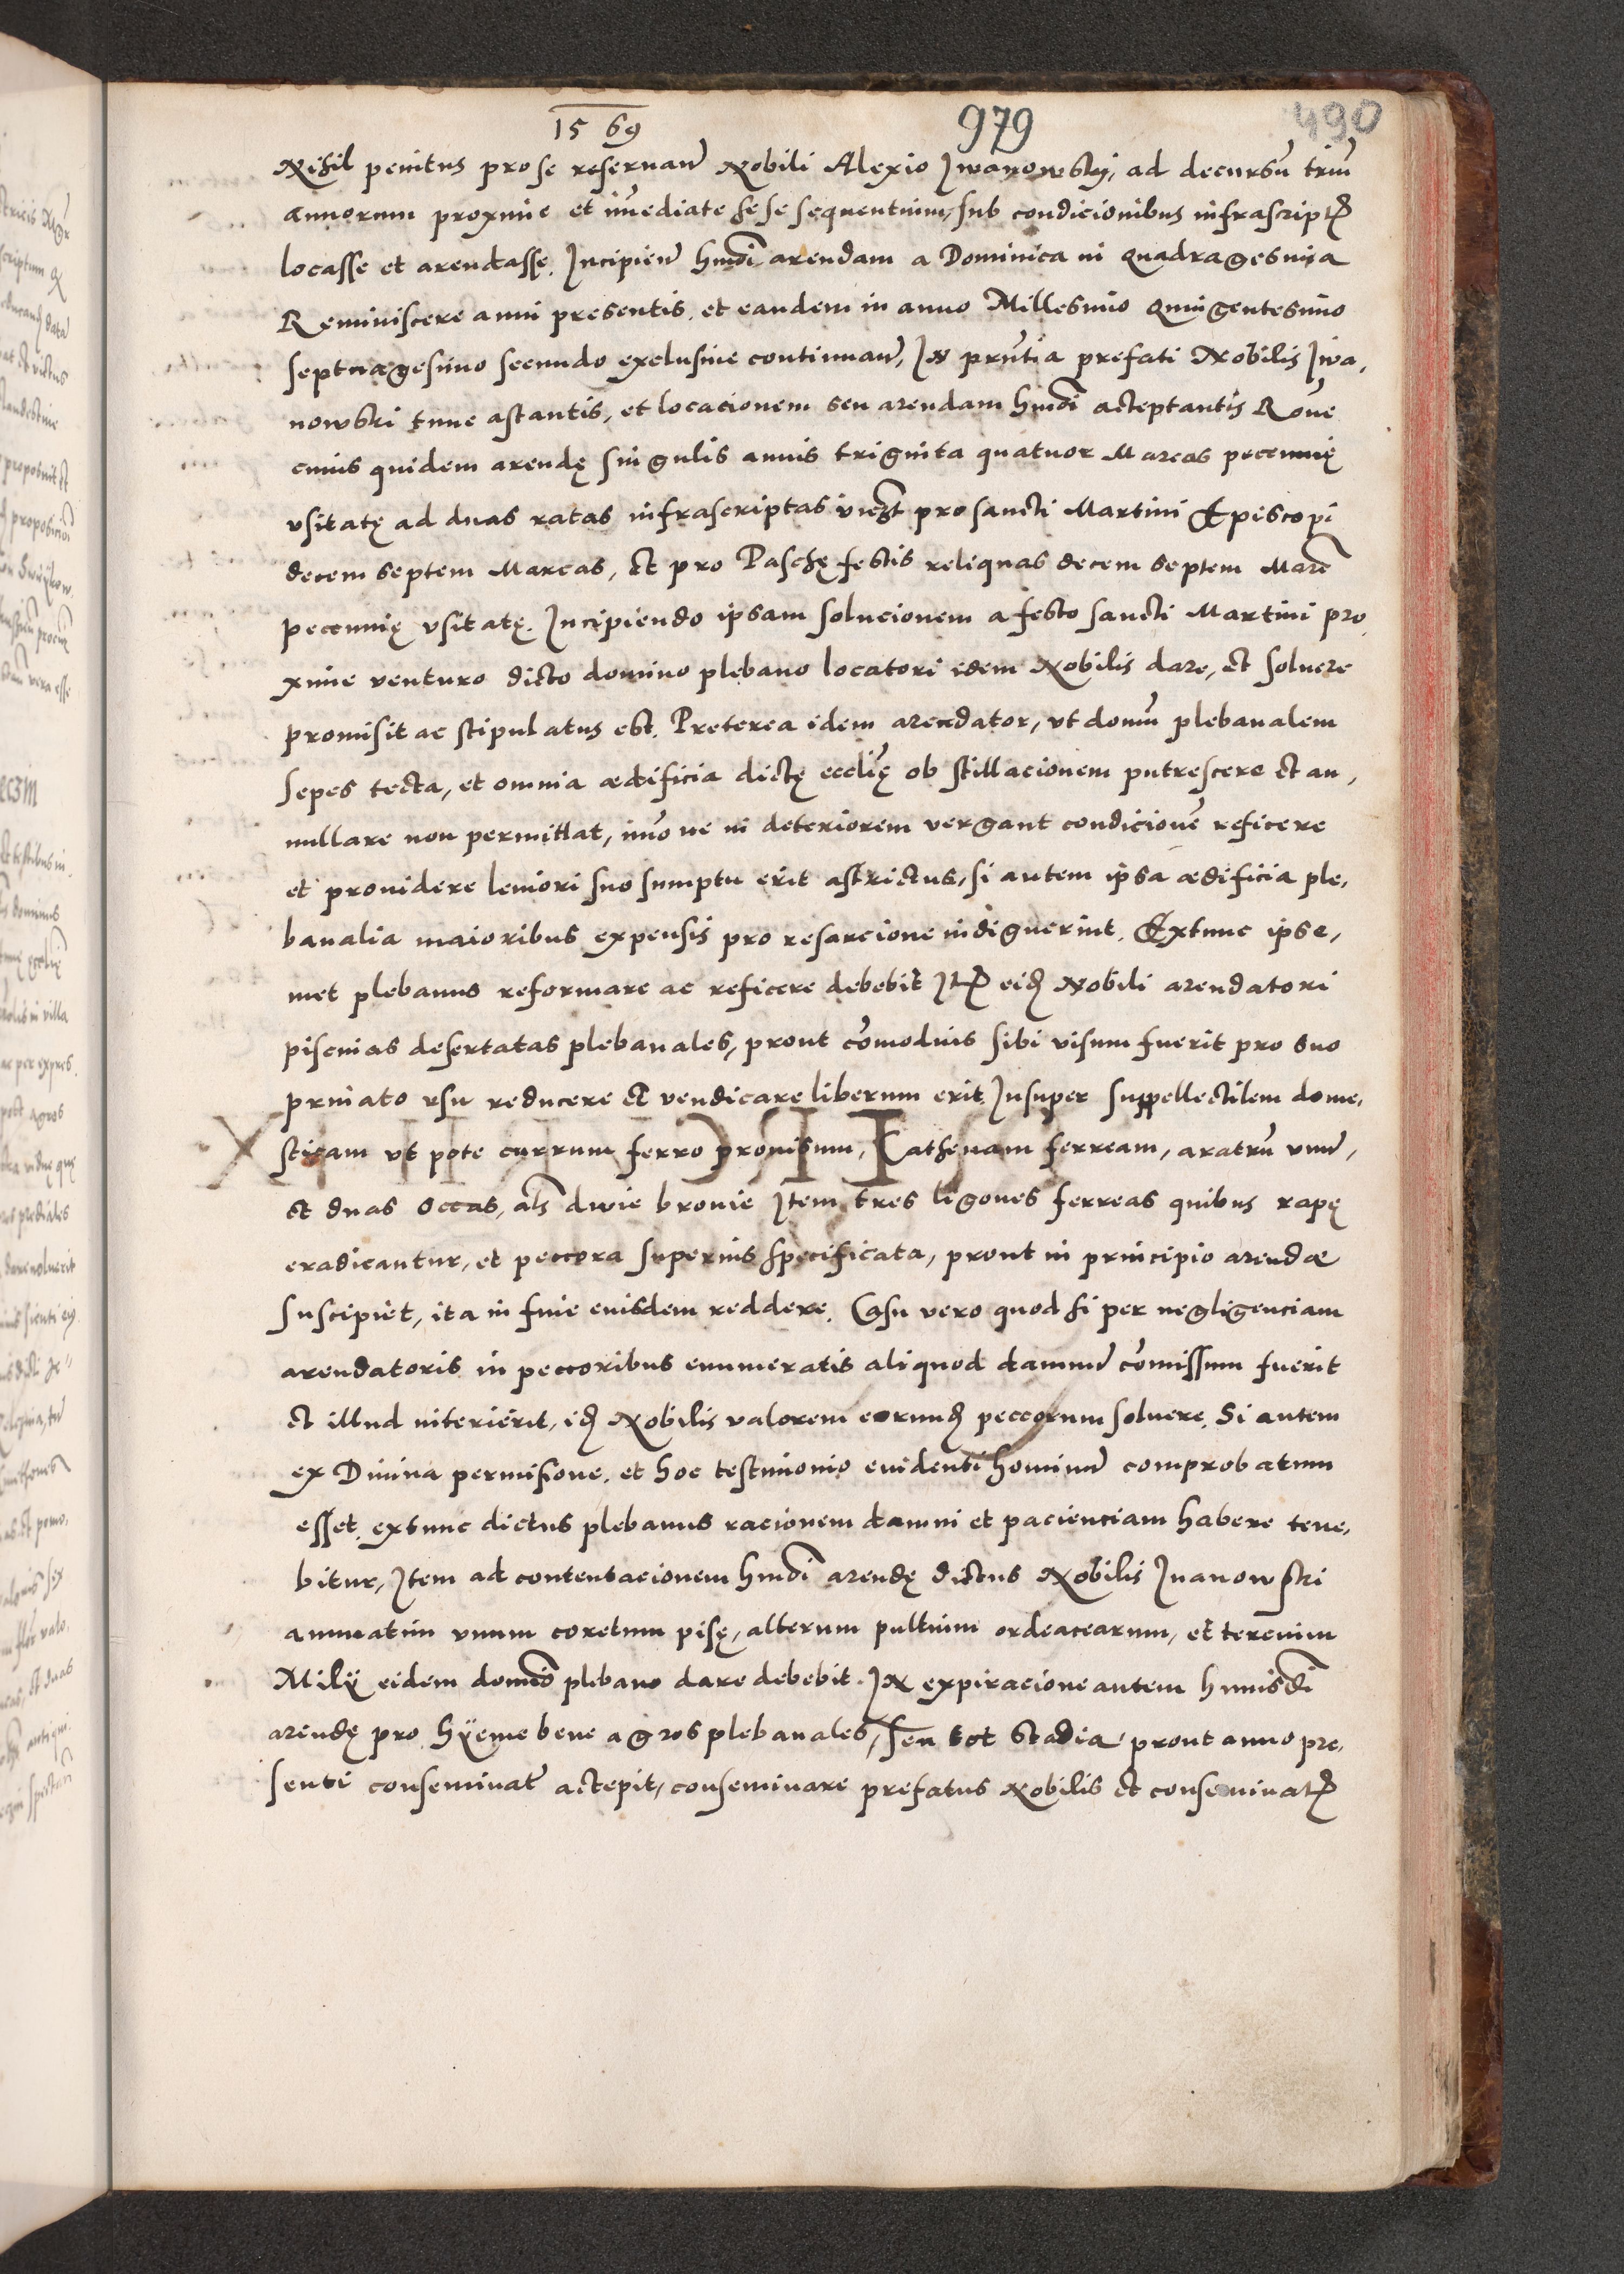 1569 979 490
Nihil penitus pro se reseruan̄ Nobili Alexio Jwanowskij, ad decursū triū
annorum proxime et im̄ediate sese sequentium, sub condicionibus infrascript̄
locasse et arendasse. Incipien̄ hmōi arendam a Dominica in Quadragesima
Reminiscere anni presentis, et eandem in anno Millesimo Quingentesimo
septuagesimo secundo exclusiue continuan̄, In pn̄tia prefati Nobilis Jwa,
nowski tunc astantis, et locacionem seu arendam hmōi acceptantis Rōne
cuius quidem arendę singulis annis triginta quatuor Marcas peccunię
vsitatę ad duas ratas infrascriptas vidz̄t pro sancti Martini Episcopi
decem septem Marcas, et pro Paschę festis reliquas decem septem Marc̄
peccunię vsitatę. Incipiendo ipsam solucionem a festo sancti Martini pro,
xime venturo dicto domino plebano locatori idem Nobilis dare, et soluere
promisit ac stipulatus est. Preterea idem arendator, vt domū plebanalem
sepes tecta, et omnia ædificia dictę eccl̄ię ob stillacionem putrescere et an,
nullare non permittat, im̄o ne in deteriorem vergant condicionē reficere
et prouidere leuiori suo sumptu erit astrictus, si autem ipsa ædificia ple,
banalia maioribus expensis pro resarcione indiguerint. Extunc ipse,
met plebanus reformare ac reficere debebit Itē eid̄ Nobili arendatori
piscinas desertatas plebanales, prout cōmodius sibi visum fuerit pro suo
priuato vsu reducere et vendicare liberum erit. Insuper suppellectilem dome,
sticam vt pote currum ferro prouisum, Cathenam ferream, aratrū vnū,
et duas occas, al̄s dwie bronie Item tres ligones ferreas quibus rapę
eradicantur, et peccora superius specificata, prout in principio arendæ
suscipiet, ita in fine eiusdem reddere. Casu vero quod si per negligenciam
arendatoris in peccoribus enumeratis aliquod damnū cōmissum fuerit
et illud interierit, id̄ Nobilis valorem eorund̄ peccorum soluere. Si autem
ex Diuina permisione, et hoc testimonio euidenti hominū comprobatum
esset. extunc dictus plebanus racionem damni et pacienciam habere tene,
bitur, Item ad contentacionem hmōi arendę dictus Nobilis Iuanowski
annuatim vnum coretum pisę, alterum pultium ordeacearum, et tercium
Milij eidem domīo plebano dare debebit. In expiracione autem huiusd̄i
arendę pro hÿeme bene agros plebanales, seu tot stadia, prout anno pre,
senti conseminat̄ accepit, conseminare prefatus Nobilis et conseminat̄